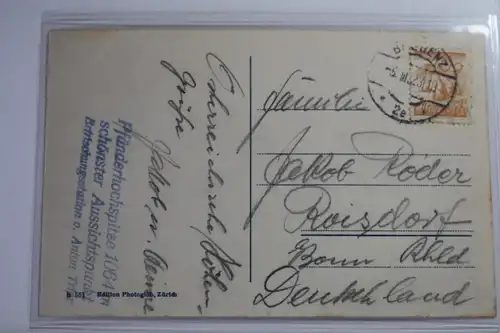 Österreichische Höhen-
grüße
Jakob u.
Pfänderhochspitze 1064 m
schönster Aussichtspunkt
Erfrischungsstation v. Anton
B 551 Edition Photoglob, Zürich
BREGENZ
Familie
Jakob Röder
Roisdorf
Bonn Rhld
Deutschland